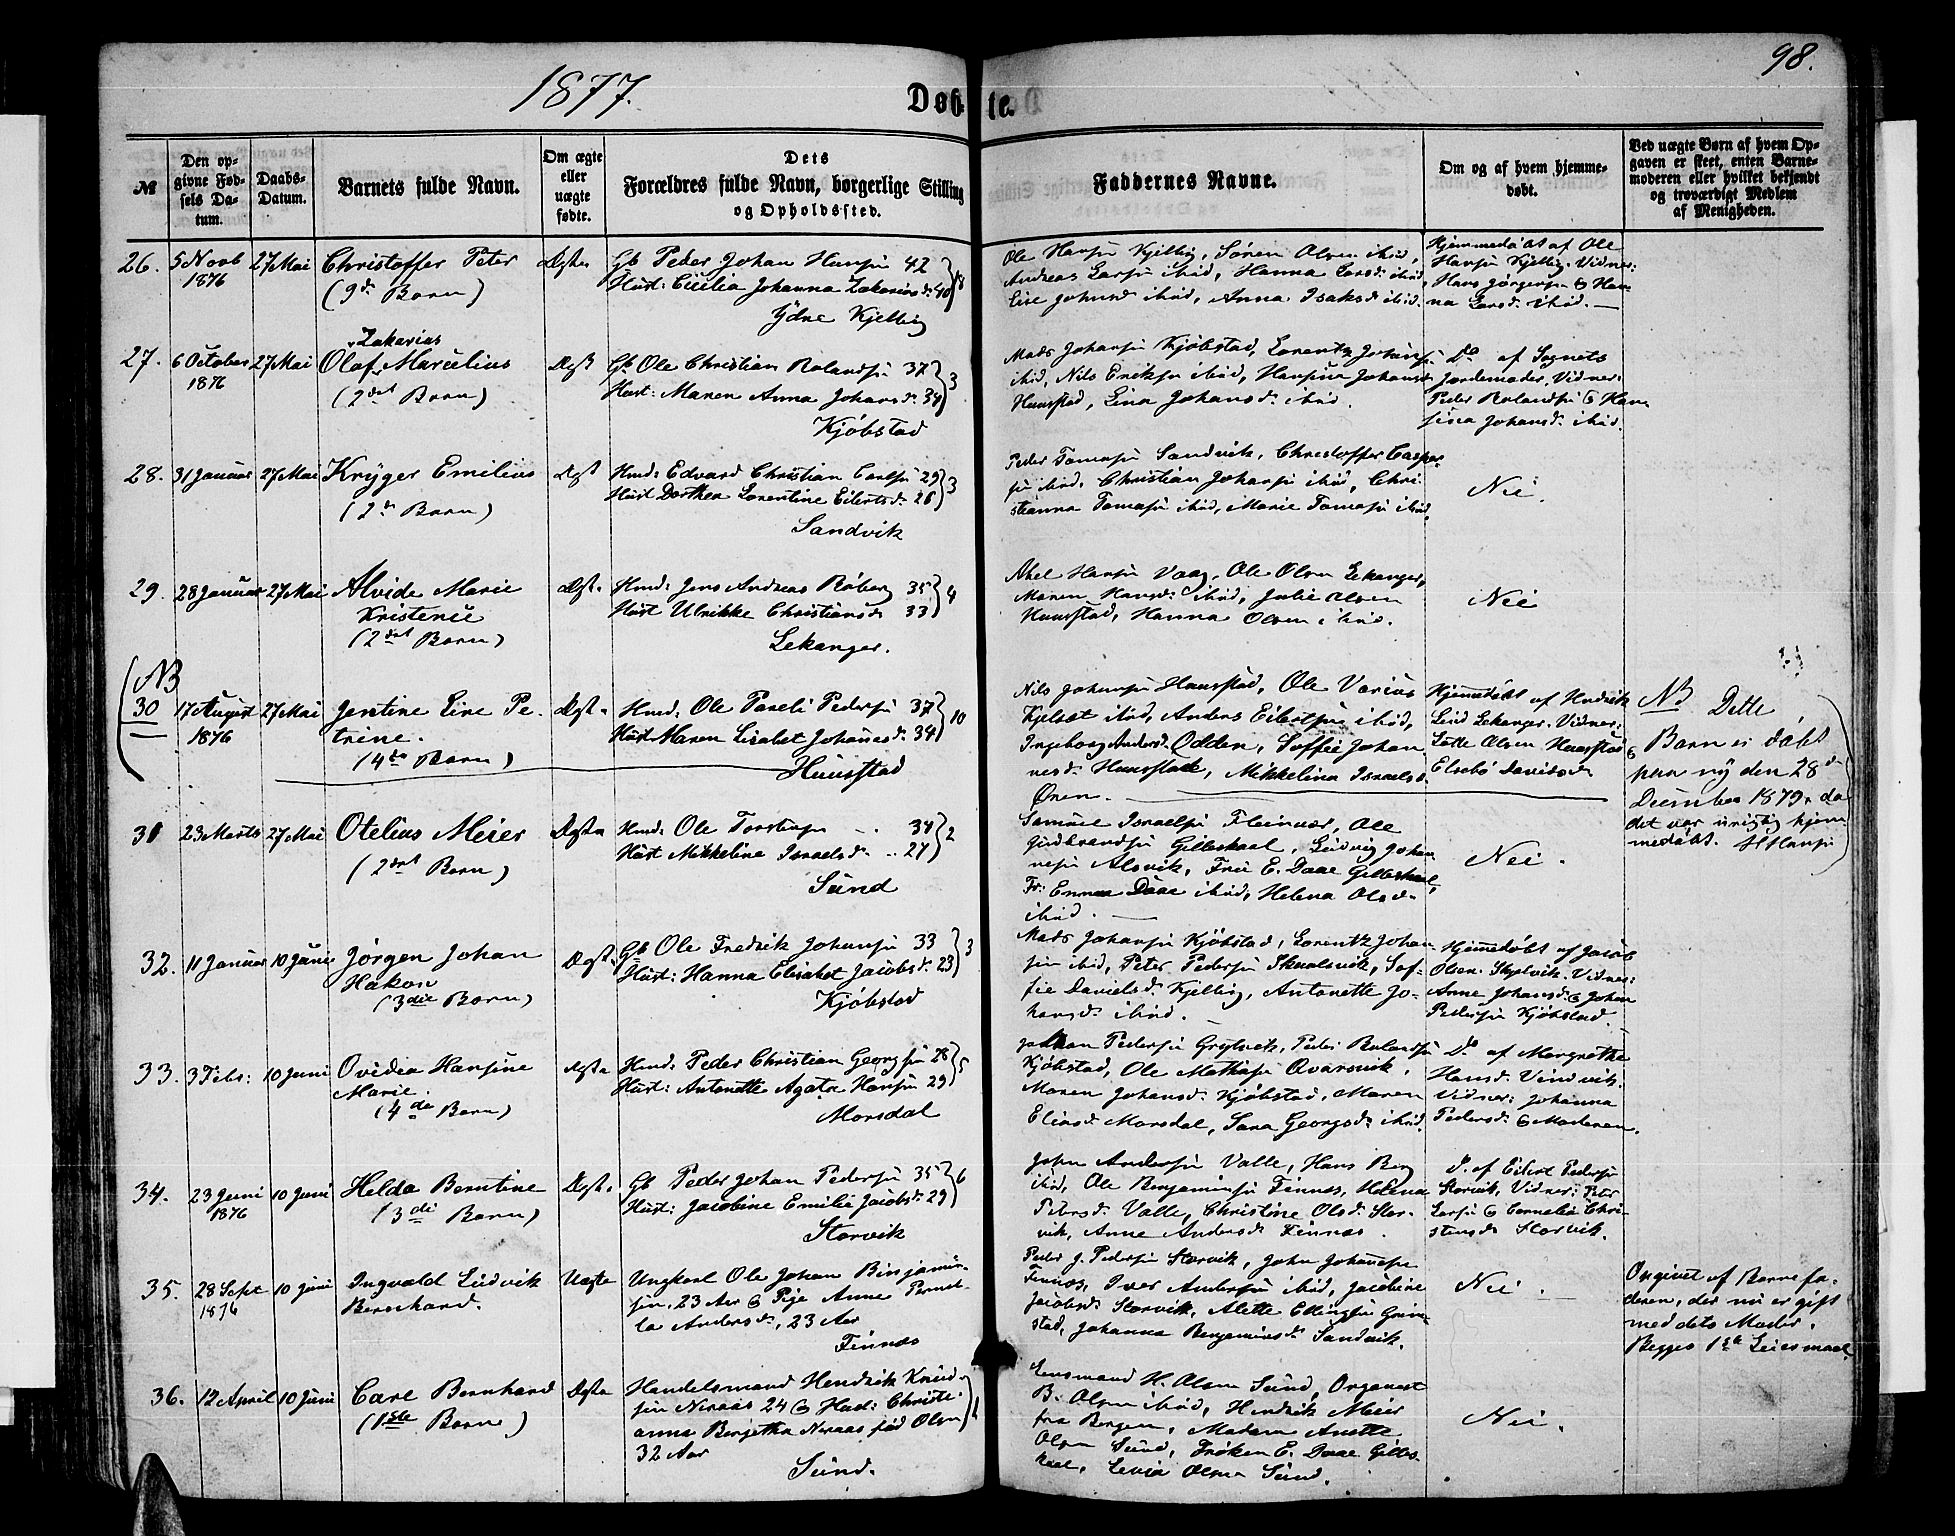 98.
1877.
Døbte.
№
Den opgivne Fødsels Datum.
Daabs-Datum.
Barnets fulde Navn.
Om ægte eller uægte fødte.
Dets Forældres fulde Navn, borgerlige Stilling og Opholdssted.
Faddernes Navne.
Om og af hvem hjemmedøbt.
Ved uægte Børn af hvem Opgaven er skeet, enten Barnemoderen eller hvilket bekjendt og troværdigt Medlem af Menigheden.
26. 5 Novb 1876 27 Mai Christoffer Peter (9de Barn) Ægte
Gb Peder Johan Hansen 42
Hust: Cicilia Johanna Zakariasd. 40
Ydre Kjelling
Ole Hansen Kjelling, Søren Olsen ibid,
Andreas Larsen ibid, Hanna Larsd. ibid,
Lise Johnsd ibid, Anna Isaksd ibid.
Hjemmedøbt af Ole
Hansen Kjelling. Vidner:
Hans Jørgensen & Han-
na Larsd. ibid.
27. 6 October 1876 27 Mai Olaf Zakarias Marselius (2det Barn) Ægt
Gb Ole Christian Rolandsen 37
Hust: Maren Anna Johansd. 34
3
Kjøbstad
Mads Johansen Kjøbstad, Lorentz Johansen
ibid, Nils Eriksen ibid, Hansina Johansd.
Huusstad, Lina Johansd. ibid.
Do af Sognets
Jordemoder. Vidner:
Peder Rolandsen & Han-
sina Johansd. ibid.
28. 31 Januar 27 Mai Kryger Emilius (2de Barn) Ægt
Hmd: Edvard Christian Carlsen 29
Hust Dorthea Lorentine Eilertsd. 26
3
Sandvik
Peder Tomasen Sandvik, Christoffer Casper-
sen ibid, Christian Johansen ibid, Chri-
stianna Tomasen ibid, Marie Tomasen ibid.
Nei.
29. 28 Januar 27 Mai Alvide Marie
Kristense
(2det Barn) Ægte
Hmd: Jens Andreas Røberg 35
Hust Ulrikke Christiansd 33
4
Lekanger.
Abel Hansen Vaag, Ole Olsen Lekanger,
Maren Hansd: ibid, Julie Olsen
Huusstad, Hanna Olsen ibid.
Nei
NB
30 17 August 1876 27 Mai Jentine Line Pe-
trine.
(4de Barn) Ægte
Hmd: Ole Pareli Pedersen 37
Hust Maren Lisabet Johansd. 34
10
Huusstad
Nils Johansen Huusstad, Ole Varius
ibid, Anders Eilertsen ibid,
Ingeborg Andersd. Odden, Soffie Johan-
nesd. Huusstad, Mikkelina Israelsd.
Øren.
Hjemmedøbt af Hendrik
Lind Lekanger. Vidner:
Lotte Olsen Huusstad &
Elsebø Davidsd
NB Dette
Barn er døbt
paa ny den 28de
December 1879, da
det var urigtig hjem-
medøbt. H Hansen
31 23 Marts 27 Mai Otelius Meier
(2det Barn) Ægte
Hmd: Ole Torstensen 34
Hust Mikkeline Israelsd. 27
2
Sund
Samuel Israelsen Fleinvær, Ole
Gudbrandsen Gilleskaal, Ludvig Johan-
nesen Alsvik, Frue E. Daae Gilleskaal,
Fr: Emma Daae ibid, Helena Olsd.
ibid.
Nei.
32. 11 Januar 10 Juni Jørgen Johan
Hakon
(3die Barn) Ægte
Gb Ole Fredrik Johansen 33
Hust: Hanna Elisabet Jacobsd. 23
3
Kjøbstad
Mads Johansen Kjøbstad, Lorentz Johan-
sen ibid, Peter Pedersen Skaalsvik, Sof-
fie Danielsd. Kjelling, Antonette Jo-
hansd. ibid.
Hjemmedøbt af Jacob
Olsen Skjelvik. Vidner:
Anne Johansd. & Johan
Pedersen Kjøbstad.
33. 3 Febr: 10 Juni Ovidia Hansine
Marie.
(4de Barn) Ægte
Hmd: Peder Christian Georgsen 28
Hust: Antonette Agate Hansen 29
5
Morsdal
Johan Pedersen Grytvik, Peder Rolandsen
Kjøbstad, Ole Mathisen Qvarsvik,
Maren Johansd. Kjøbstad, Maren
Eliasd. Morsdal, Sara Georgsd. ibid.
Do af Margrethe
Hansd. Vindvik.
Vidner: Johanna
Pedersd. & Moderen.
34. 23 Juni 1876 10 Juni Helda Berntine
(3die Barn) Ægte
Gb Peder Johan Pedersen 35
Hust: Jacobine Emilie Jacobsd. 29
6
Storvik
John Andersen Valle, Hans Berg
ibid, Ole Benjaminsen Finnes, Helena
Petersd. Valle, Christine Olsd. Stor-
vik, Anne Andersd. Finnes.
D. af Eilert Pedersen
Storvik, Vidner: Peter
Larsen & Cornelia Chri-
stensd. Storvik.
35. 28 Sept 1876 10 Juni Ingvald Ludvik
Bernhard. Uægte
Ungkarl Ole Johan Binjamin-
sen, 23 Aar & Pige Anne Pernel-
la Andersd., 23 Aar
Finnes
Peder J. Pedersen Storvik, John Johansen
Finnes, Iver Andersen ibid, Jacobine
Jacobsd. Storvik, Alette Ellingsen Grim-
stad, Johanna Benjaminsd. Sandvik.
Nei.
Opgivet af Barnefa-
deren, der nu er gift
med dets Moder.
Begges 1ste Leiermaal.
36. 12 April 10 Juni Carl Bernhard
(1ste Barn) Ægte
Handelsmand Hendrik Knud-
sen Neraas 24 & Hust: Christi-
anna Bergetha Neraas fød Olsen
32 Aar
1
Sund.
Lensmand H. Olsen Sund, Organist
B. Olsen ibid, Hendrik Meier
fra Bergen, Madam Anette
Olsen Sund, Frøken E. Daae Gilles-
kaal, Lovise Olsen Sund.
Nei.